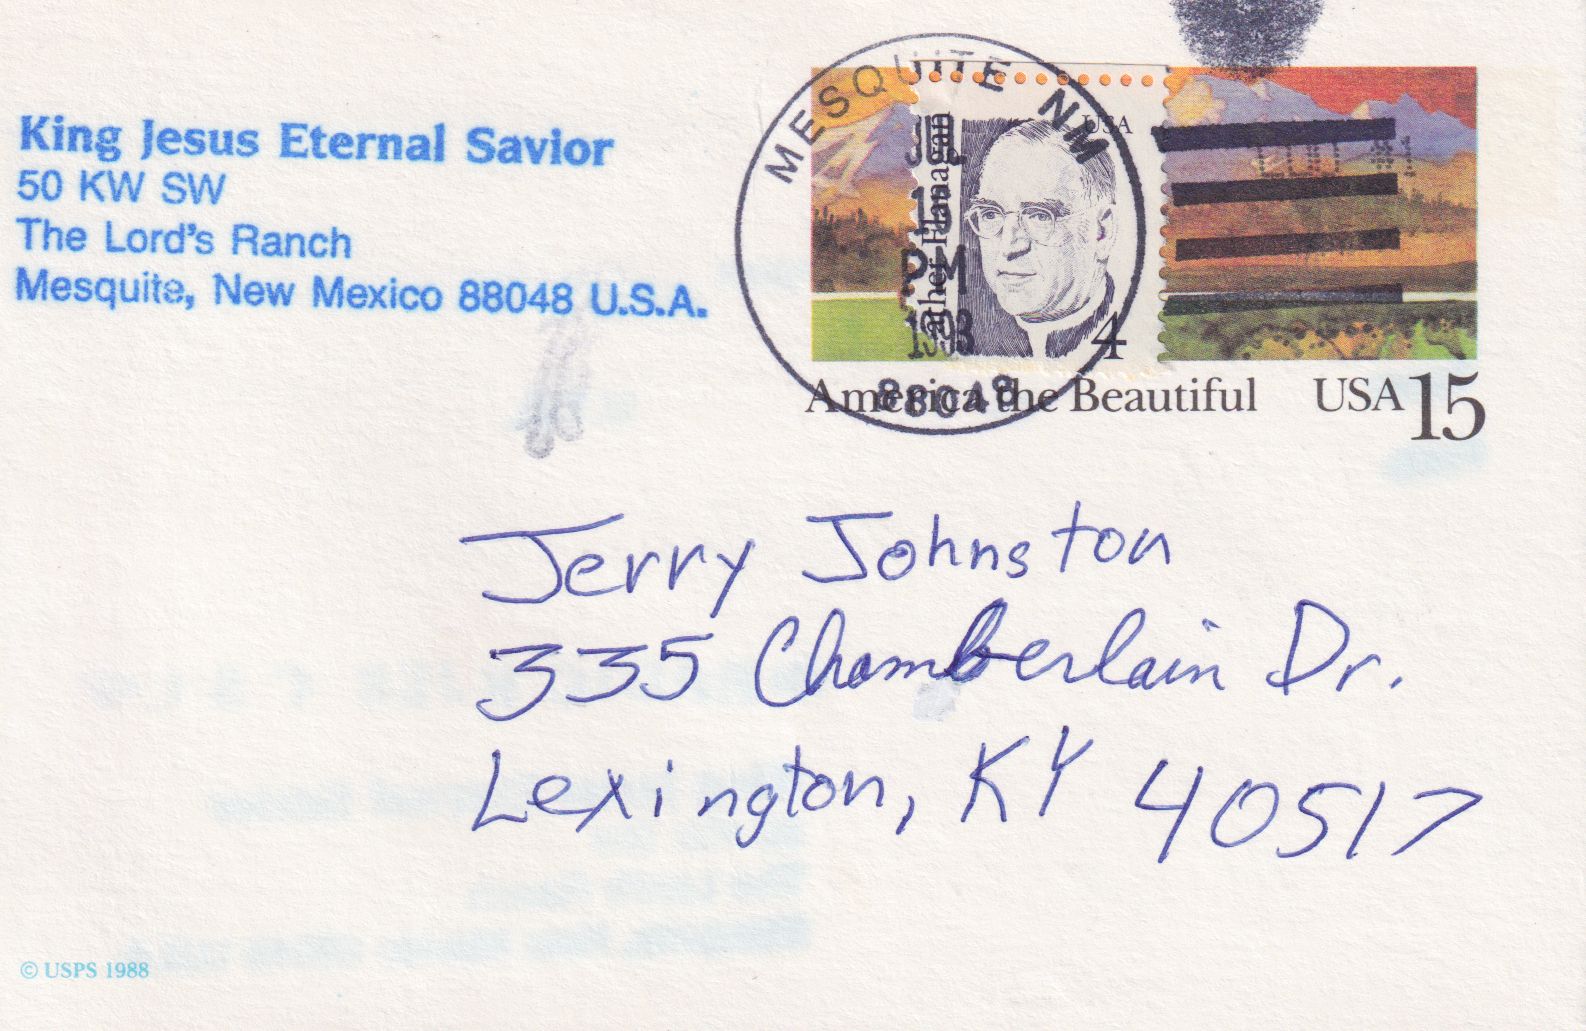 King Jesus Eternal Savior
50 KW SW
The Lord's Ranch
Mesquite, New Mexico 88048 U.S.A.
MESQUITE NM
JUL
PM
1993
88048
USA
Father Flanagan
4
America the Beautiful USA 15
Jerry Johnston
335 Chamberlain Dr.
Lexington, KY 40517
© USPS 1988